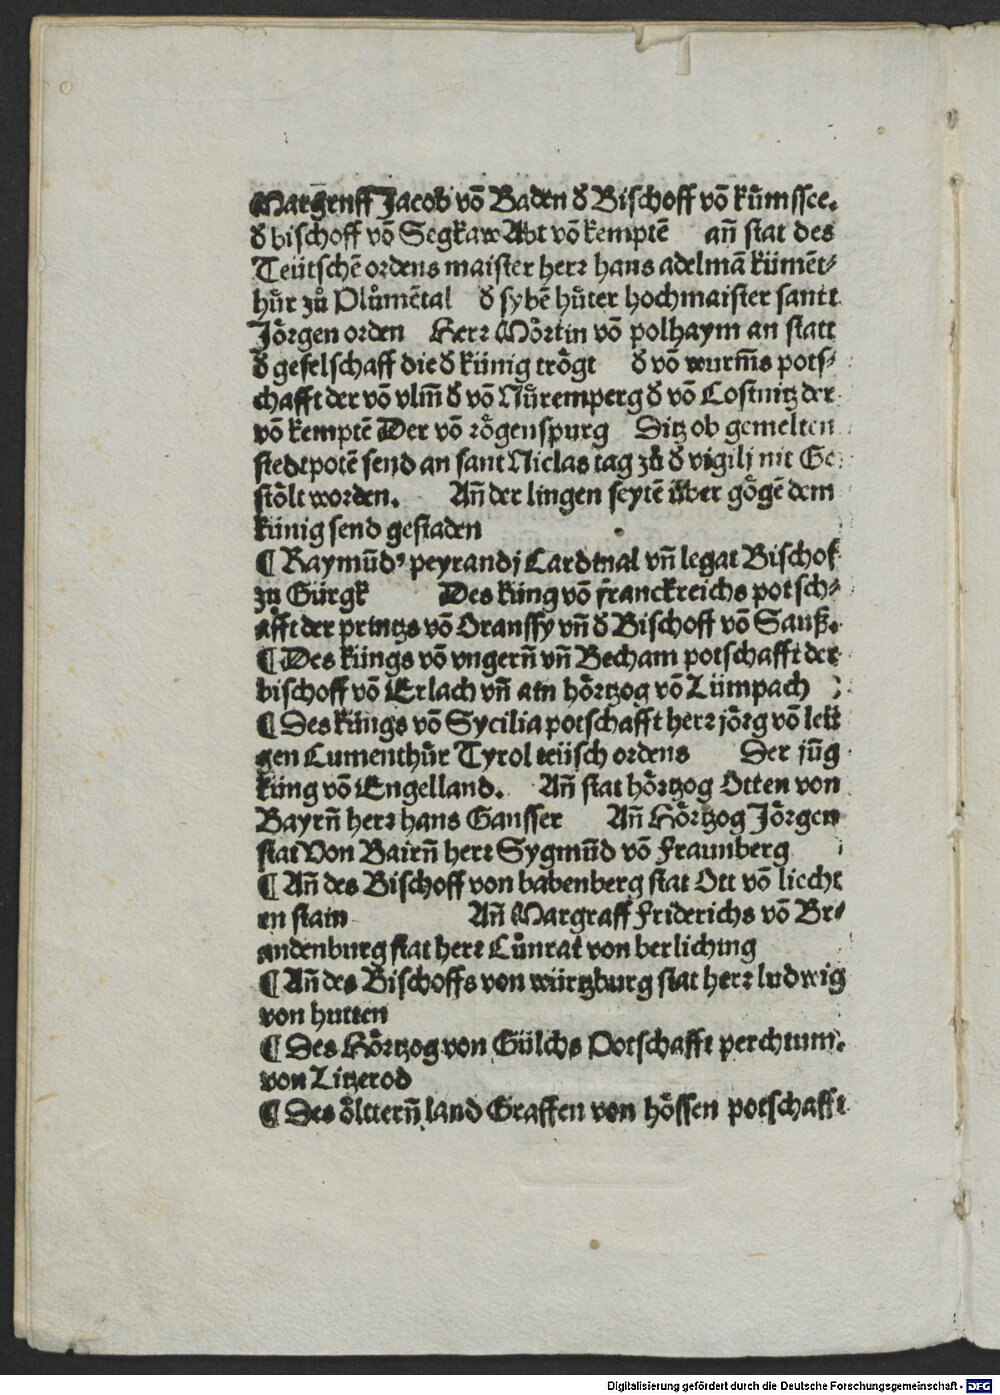 Margrnff Jacob võ Baden ð Bischoff võ kůmssee.
ð bischoff võ Segkaw Abt võ kemptẽ an̄ stat des
Teütschẽ ordens maister herr hans adelmã kümẽt⸗
hůr zů Plůmẽtal ð sybẽ hůter hochmaister santt
Jörgen orden Herr Mörtin võ polhaym an statt
ð geselschaff die ð künig trögt ð võ wurm̃s pots⸗
chafft der võ vlm̃ ð võ Nůremperg ð võ Costnitz der
võ kemptẽ Der võ rögenspurg Ditz ob gemelten
stedtpotẽ send an sant Niclas tag zů ð vigilj nit Ge
stölt worden. An̄ der lingen seytẽ über gögẽ dem
künig send gestaden
¶ Raymũdꝰ peyrandj Cardinal vn̄ legat Bischof
zu Gürgk Des küng võ franckreichs potsch⸗
afft der printzs võ Oranssy vn̄ ð Bischoff võ Sauß.
¶ Des küngs võ vngern̄ vn̄ Becham potschafft der
bischoff võ Erlach vn̄ ain hörtzog võ Lümpach
¶ Des küngs võ Sycilia potschafft herr jörg võ leü
gen Cumenthůr Tyrol teüsch ordens Der jũg
küng võ Engelland. An̄ stat hörtzog Otten von
Bayrn̄ herr hans Gansser An̄ Hörtzog Jörgen
stat Von Bairn̄ herr Sygmũd võ Fraunberg
¶ An̄ des Bischoff von babenberg stat Ott võ liecht
en stain An̄ Margraff Friderichs võ Br⸗
andenburg stat herr Cůnrat von berliching
¶ An̄ des Bischoffs von würtzburg stat herr ludwig
von hutten
¶ Des Hörtzog von Gülchs Potschafft perchtum.
von Litzerod
¶ Des öltern̄ land Graffen von hössen potschafft
Digitalisierung gefördert durch die Deutsche Forschungsgemeinschaft - DFG